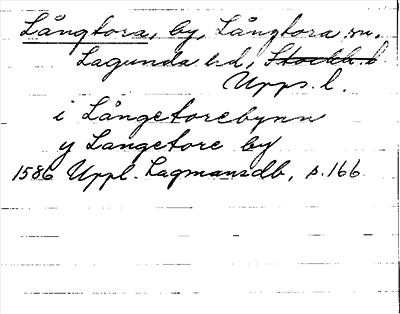 Långtora, by, Långtora sn,
Lagunda hd, Stockh. l
Upps. l.
i Långetorebynn
y Langetore by
1586 Uppl. Lagmansdb, s. 166